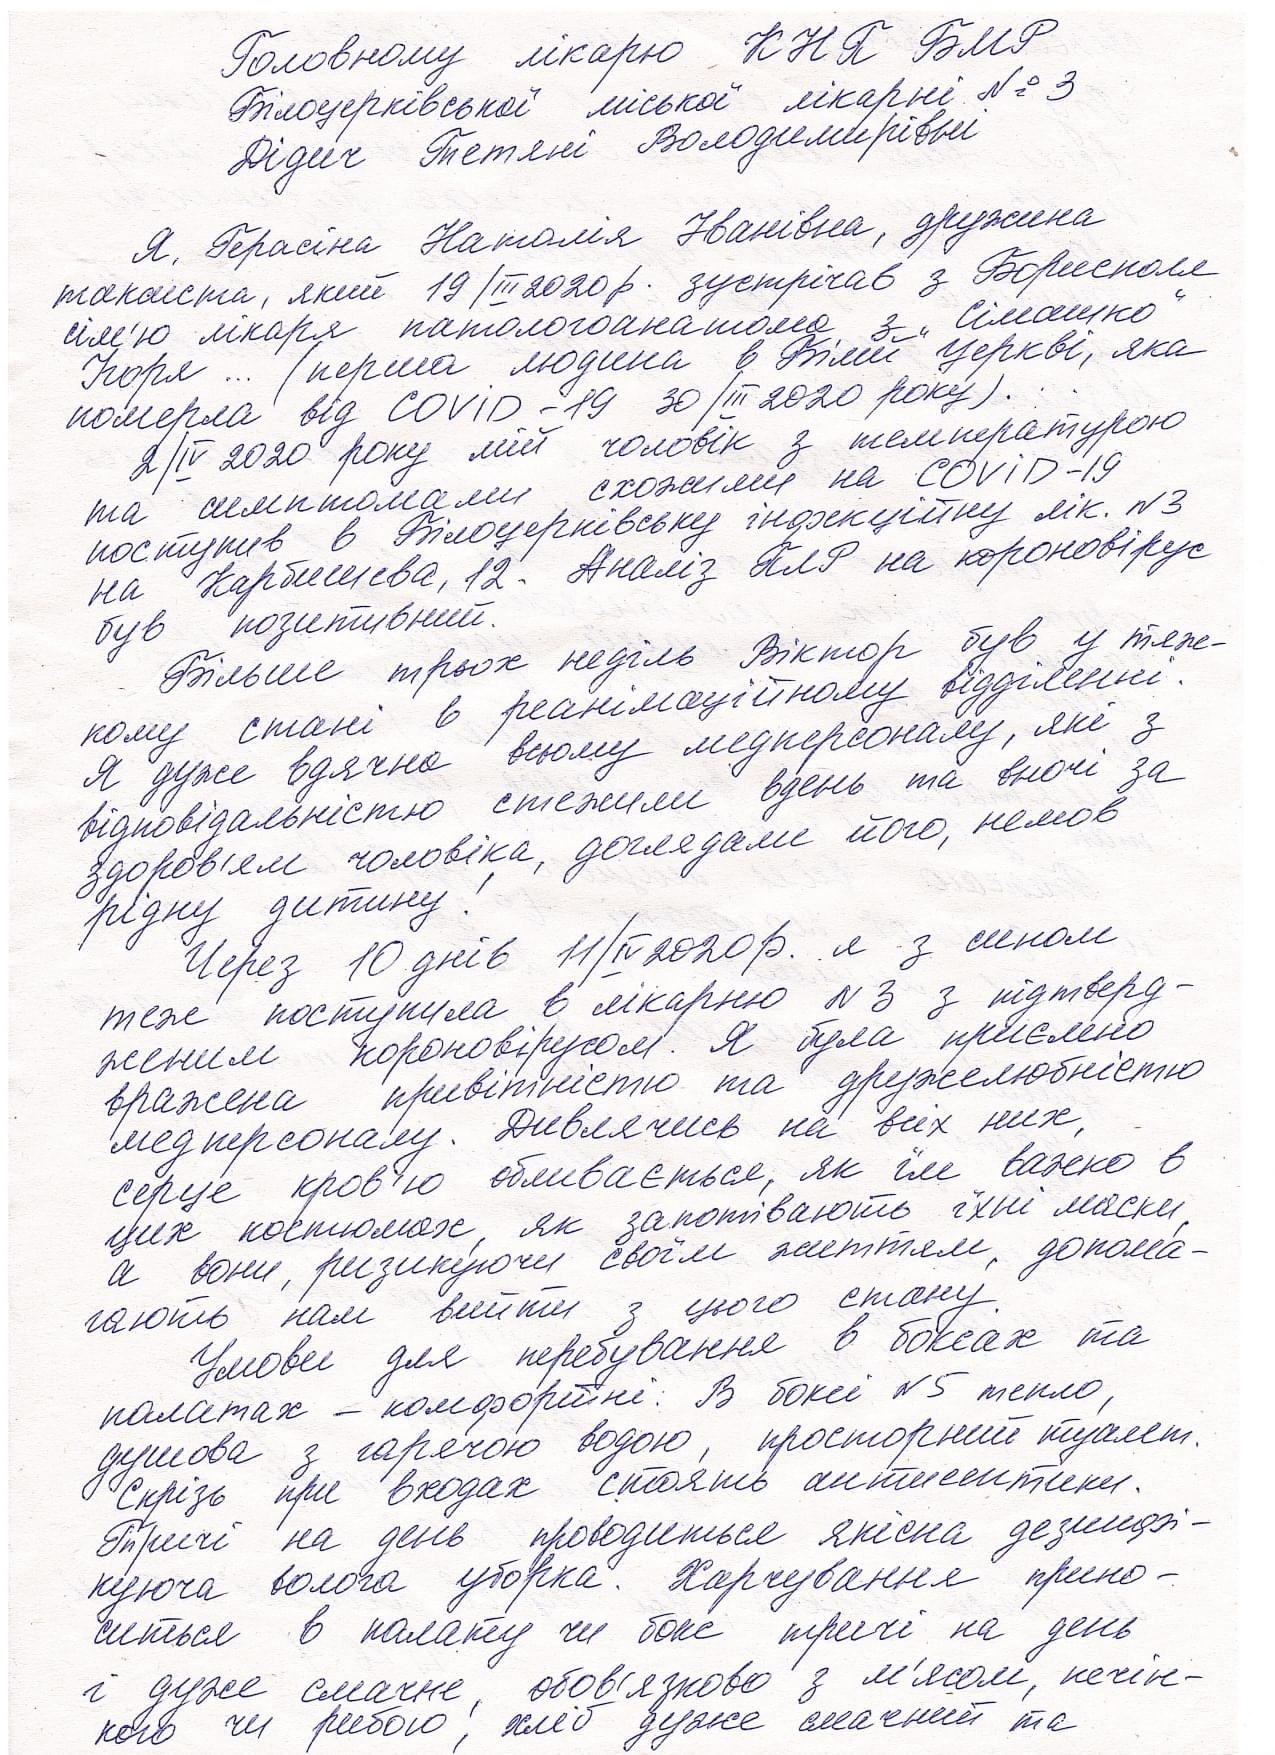 Головному лікарю КНП БМР
Білоцерківської міської лікарні №3
Дідич Тетяні Володимирівні
Я, Герасіна Наталія Іванівна, дружина
таксиста, який 19/III 2020р. зустрічав з Борисполя
сім'ю лікаря патологоанатома з „Сімашко"
Ігоря ... (перша людина в Білій Церкві, яка
померла від COVID-19 30/III 2020 року).
2/IV 2020 року мій чоловік з температурою
та симптомами схожими на COVID-19
поступив в Білоцерківську інфекційну лік. №3
на Карбишева, 12. Аналіз ПЛР на короновірус
був позитивний.
Більше трьох неділь Віктор був у тяж-
кому стані в реанімаційному відділенні.
Я дуже вдячна всьому медперсоналу, які з
відповідальністю стежили вдень та вночі за
здоров'ям чоловіка, доглядали його, немов
рідну дитину!
Через 10 днів 11/IV 2020р. я з сином
теж поступила в лікарню №3 з підтверд-
женим короновірусом. Я була приємно
вражена привітністю та дружелюбністю
медперсоналу. Дивлячись на всіх них,
серце кров'ю обливається, як їм важко в
цих костюмах, як запотівають їхні маски,
а вони, ризикуючи своїм життям, допома-
гають нам вийти з цього стану.
Умови для перебування в боксах та
палатах - комфортні. В боксі №5 тепло,
душова з гарячою водою, просторний туалет.
Скрізь при входах стоять антисептики.
Тричі на день проводиться якісна дезинфі-
куюча волога уборка. Харчування прино-
ситься в палату чи бокс тричі на день
і дуже смачне, обов'язково з м'ясом, печін-
кою чи рибою, хліб дуже смачний та